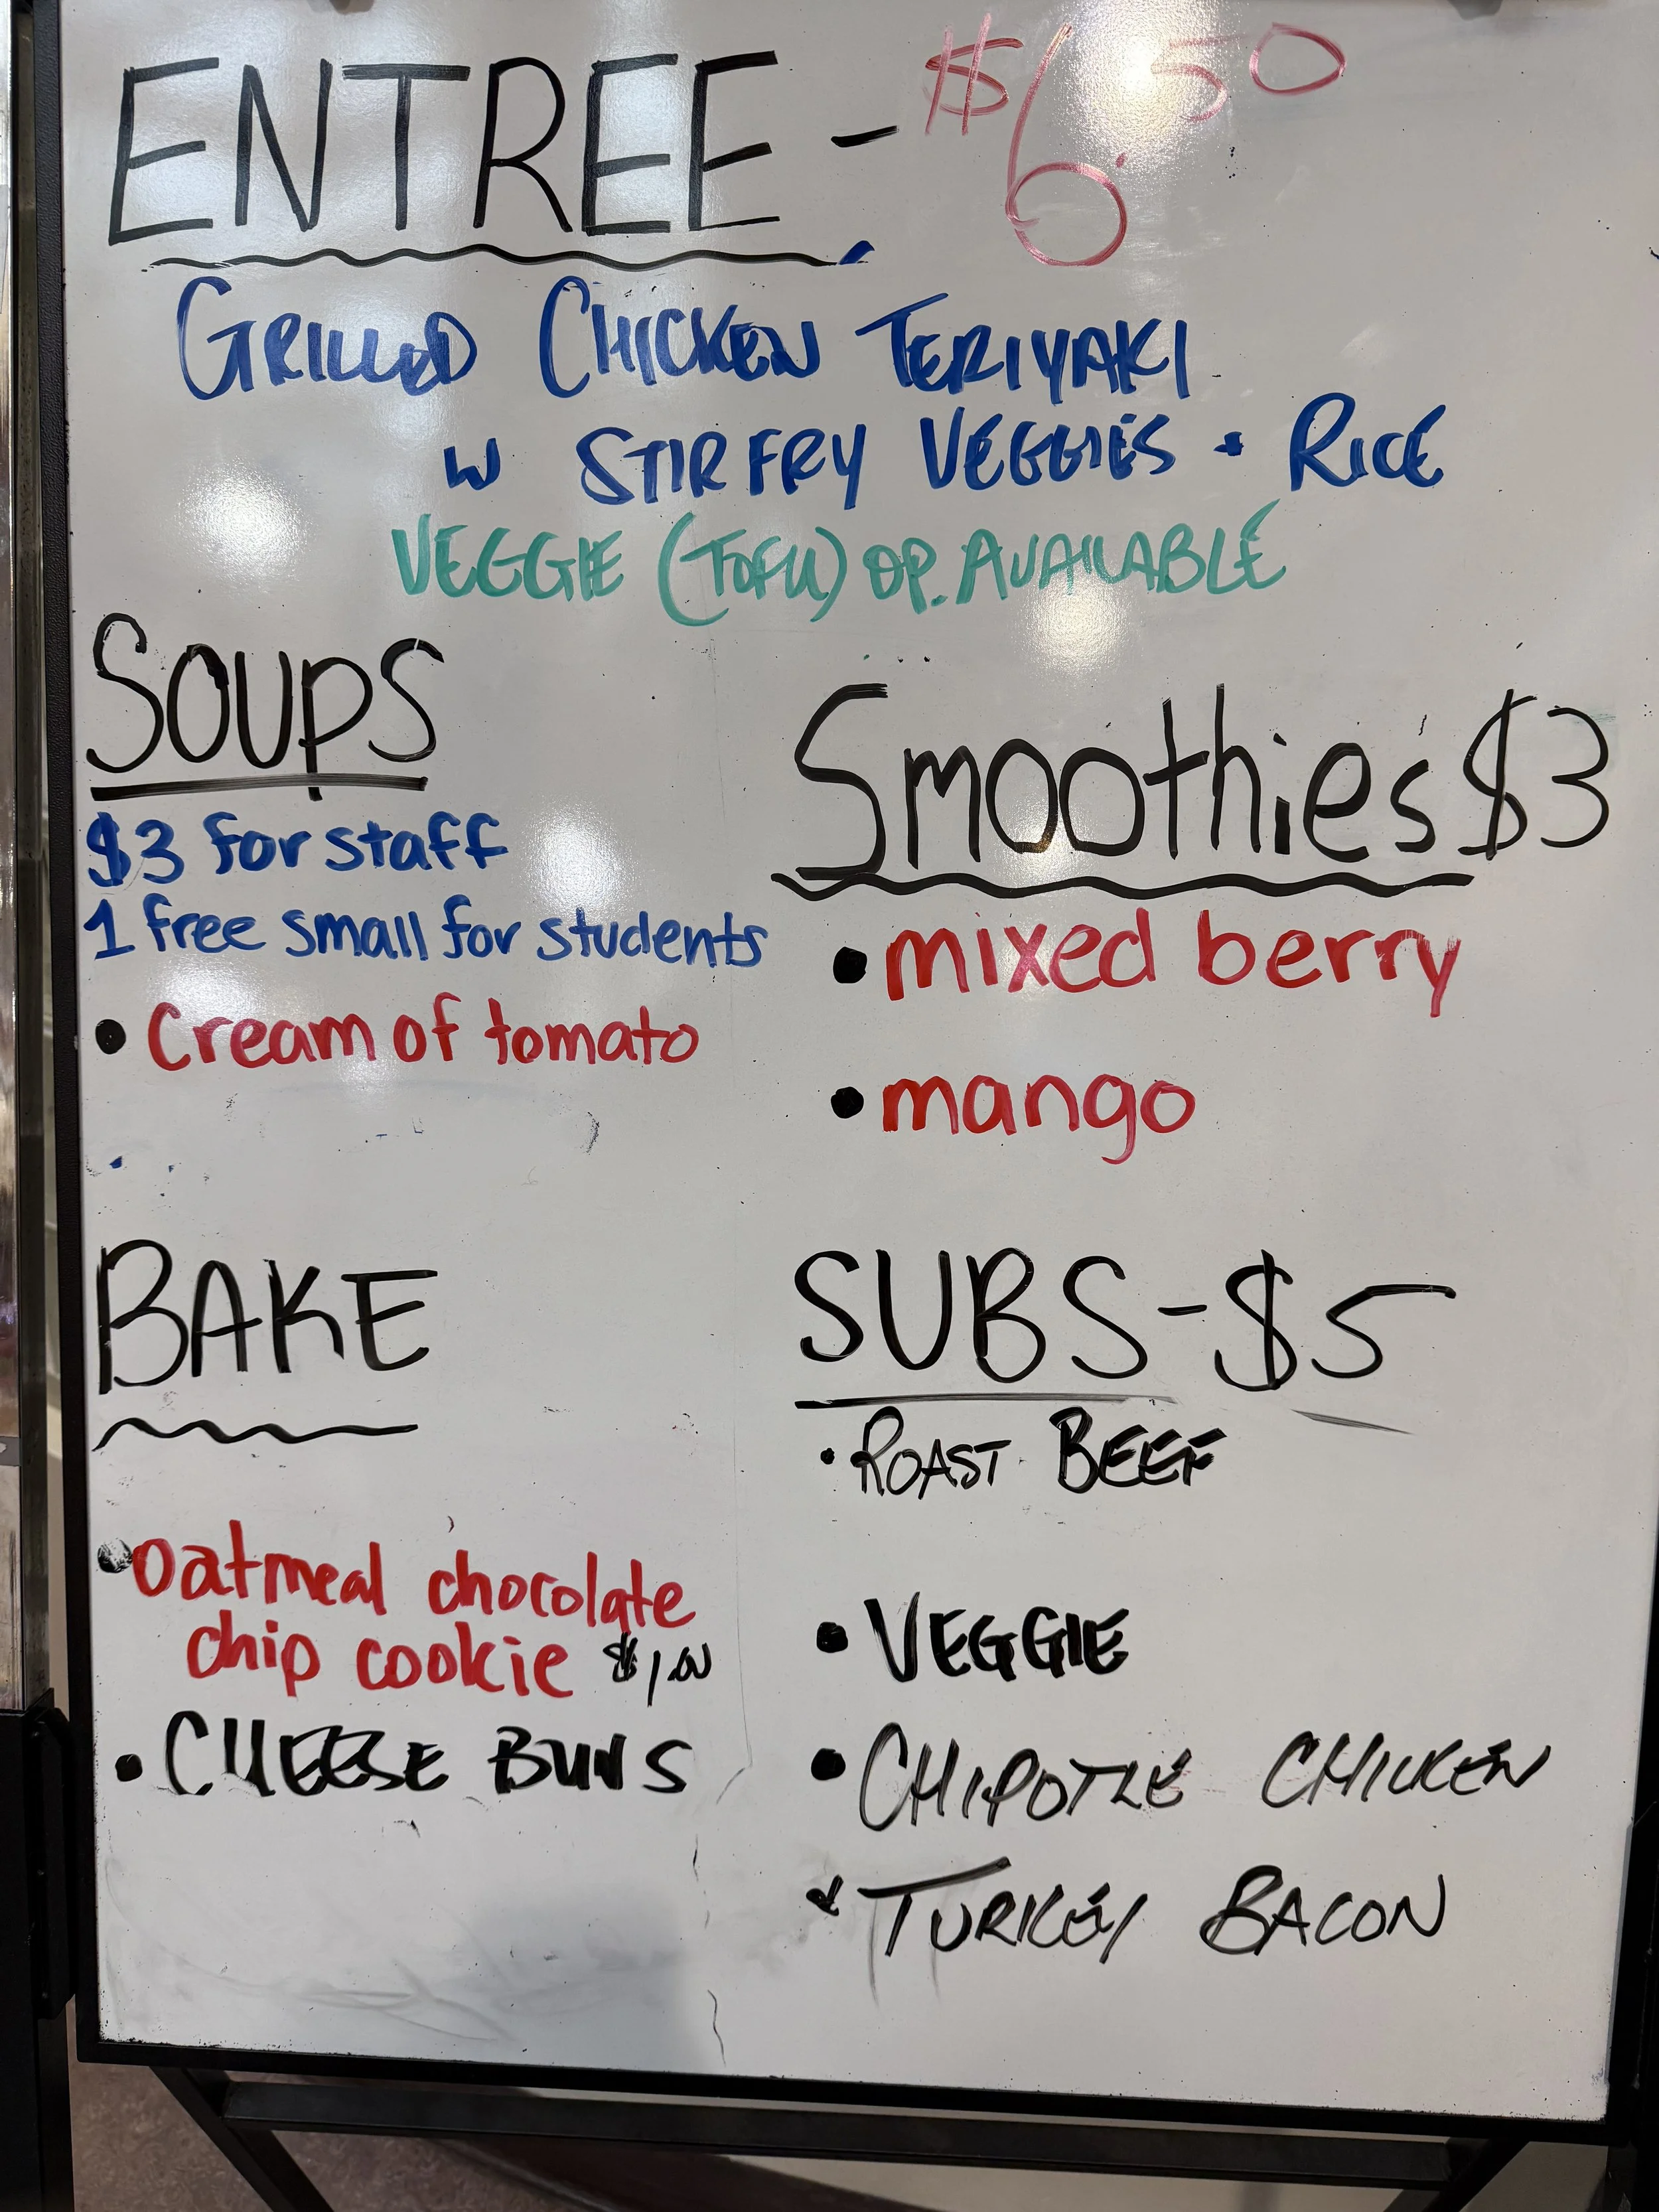 ENTREE - $6.50
GRILLED CHICKEN TERIYAKI
W STIR FRY VEGGIES + RICE
VEGGIE (TOFU) OP. AVAILABLE
SOUPS
$3 for staff
1 free small for students
• Cream of tomato
Smoothies $3
• mixed berry
• mango
BAKE
• oatmeal chocolate
chip cookie $1.00
• CHEESE BUNS
SUBS - $5
• ROAST BEEF
• VEGGIE
• CHIPOTLE CHICKEN
• TURKEY BACON